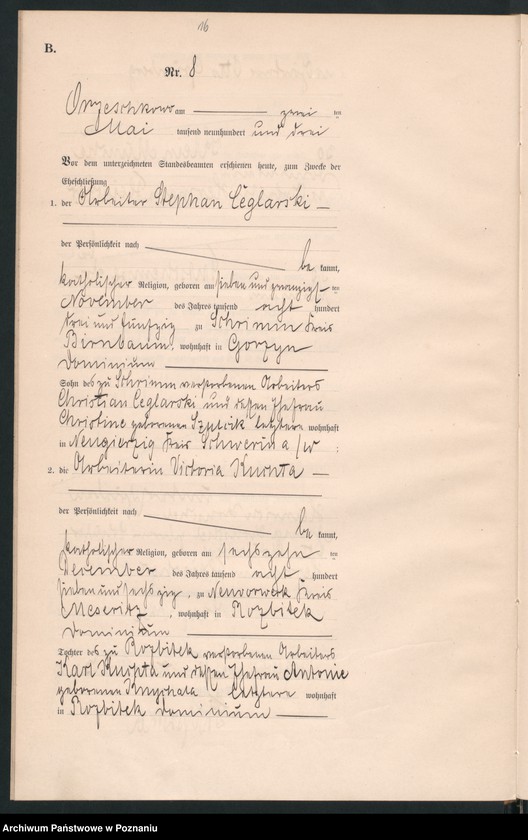 16
B.
Nr. 8
Orzeschkowo am zwei ten
Mai tausend neunhundert und drei
Vor dem unterzeichneten Standesbeamten erschienen heute, zum Zwecke der
Eheschließung
1. der Arbeiter Stephan Ceglarski
der Persönlichkeit nach
be kannt,
katholischer Religion, geboren am sieben und zwanzigs ten
November des Jahres tausend acht hundert
drei und fünfzig zu Schrimm Kreis
Birnbaum, wohnhaft in Gorzyn
Dominium
Sohn des zu Schrimm verstorbenen Arbeiters
Christian Ceglarski und dessen Ehefrau
Christine geborenen letztere wohnhaft
in Kreis Schwerin a/W ;
2. die Arbeiterin Victoria
der Persönlichkeit nach
be kannt,
katholischer Religion, geboren am sechszehn ten
Dezember des Jahres tausend acht hundert
sieben und sechszig, zu Neuvorwerk Kreis
Meseritz, wohnhaft in Rozbitek
Dominium
Tochter des zu Rozbitek verstorbenen Arbeiters
Karl und dessen Ehefrau Antonie
geborenen letztere wohnhaft
in Rozbitek Dominium
Archiwum Państwowe w Poznaniu